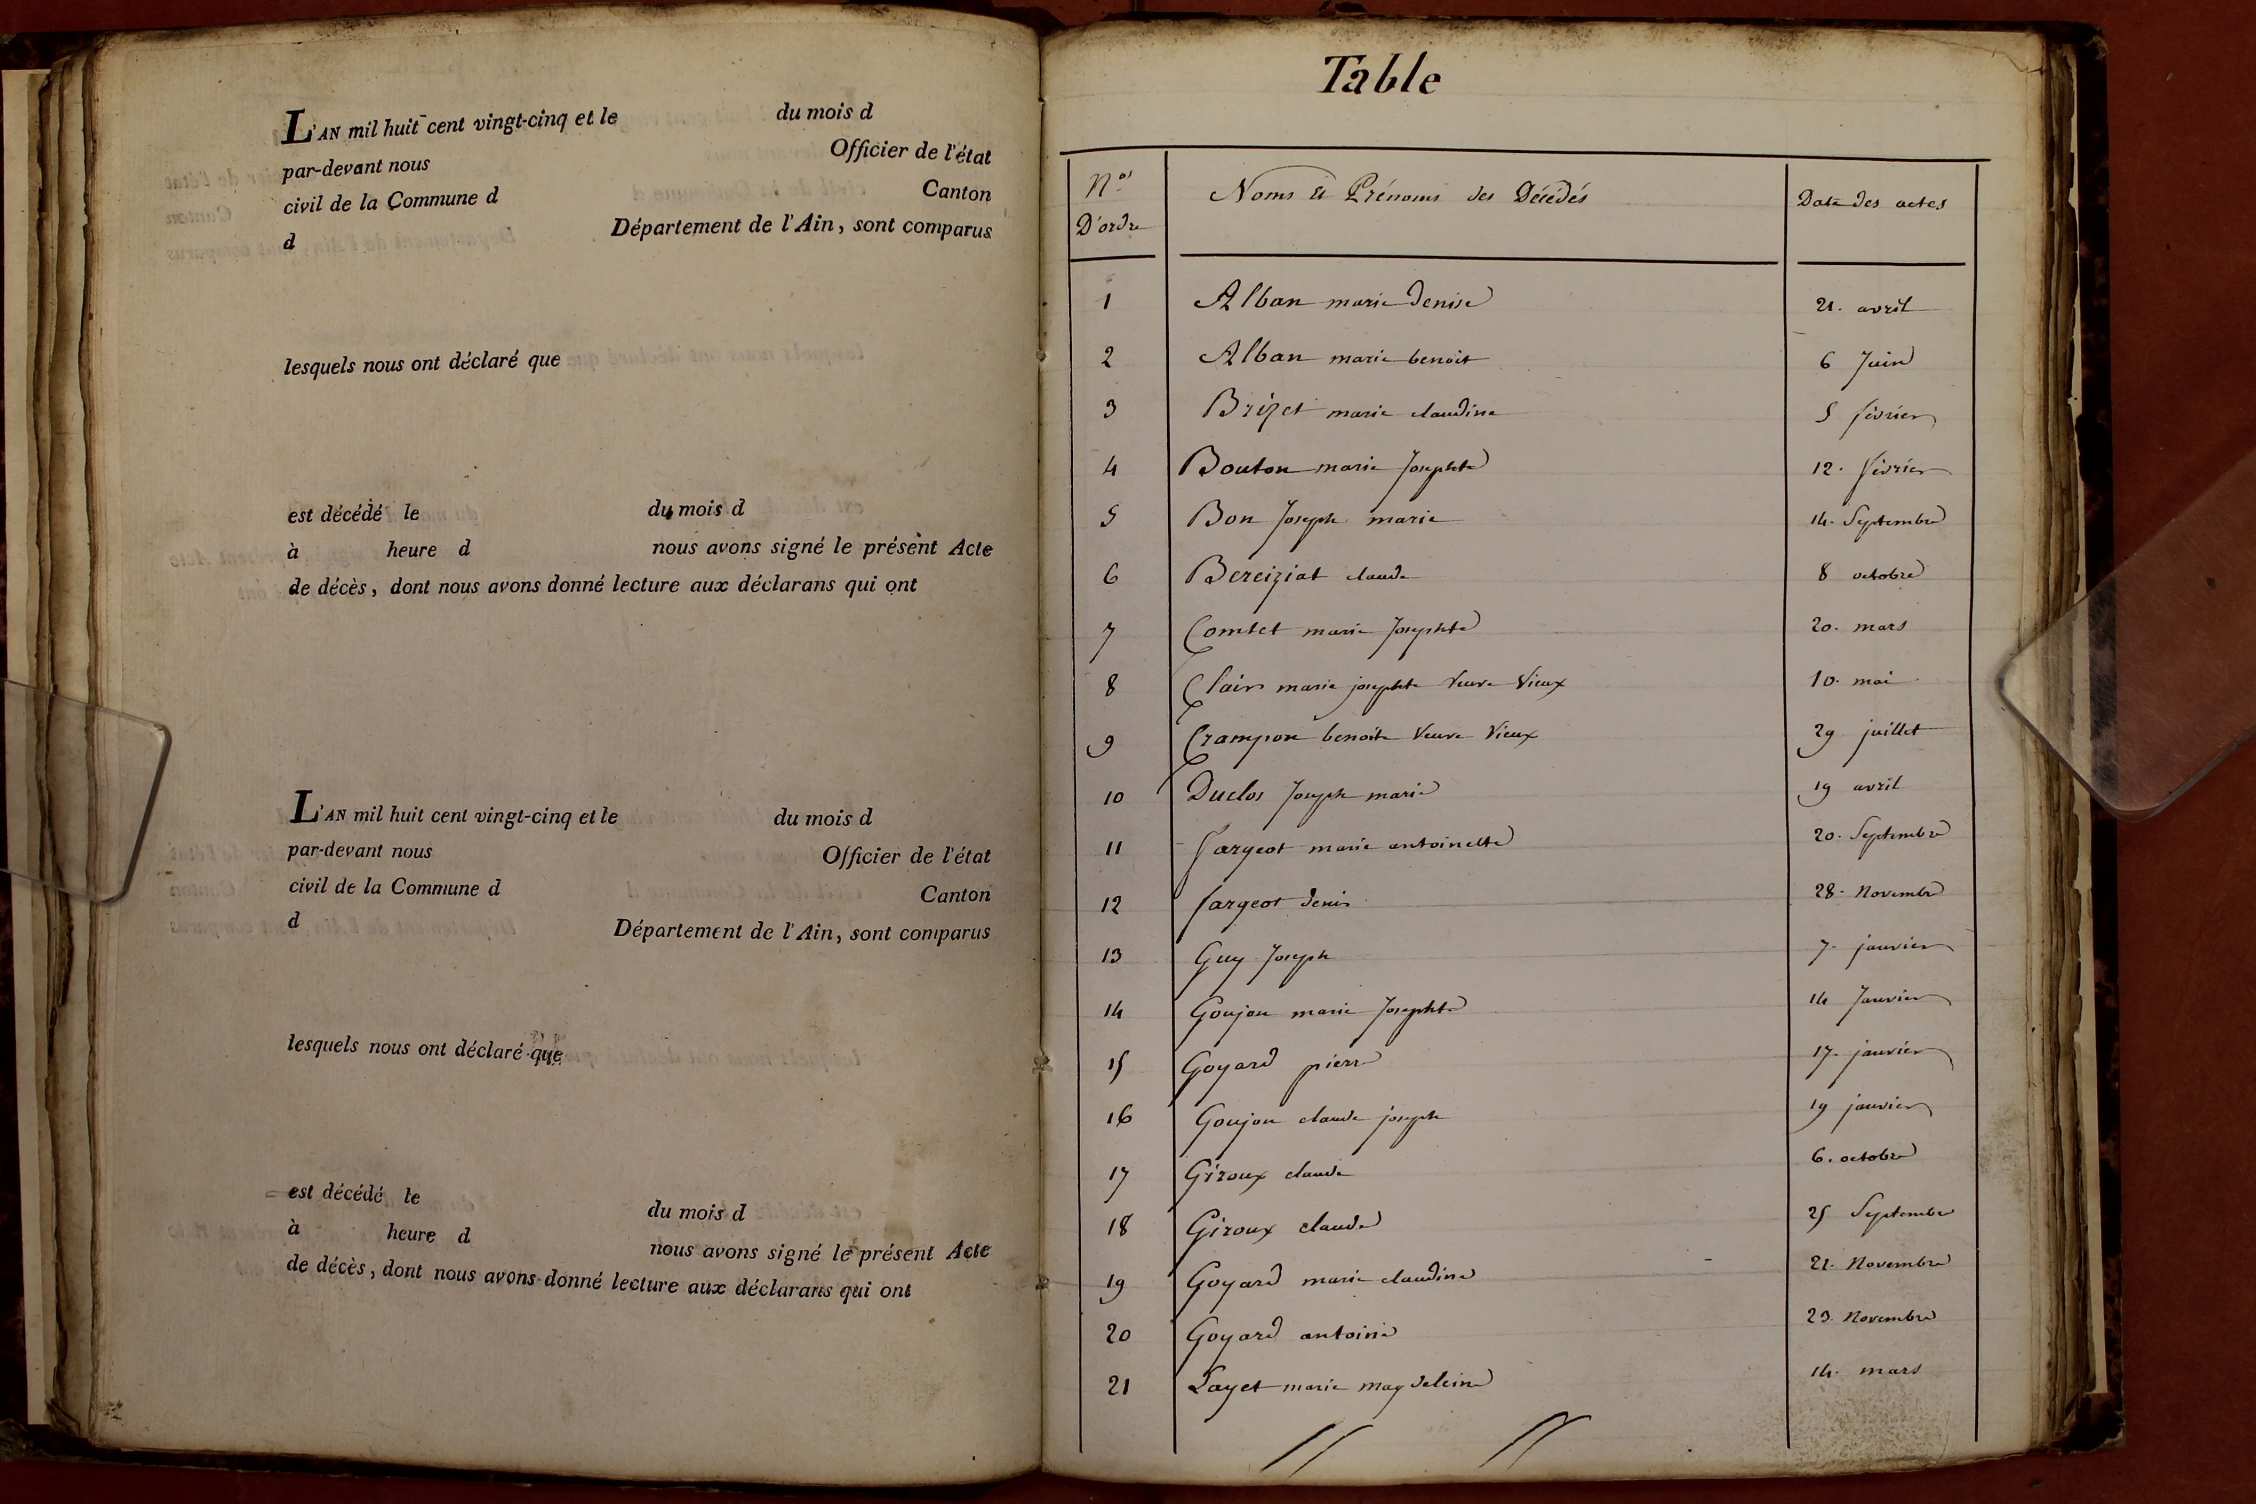 L'AN mil huit cent vingt-cinq et le du mois d
par-devant nous Officier de l'état
civil de la Commune d Canton
d Département de l'Ain, sont comparus
lesquels nous ont déclaré que
est décédé le du mois d
à heure d nous avons signé le présent Acte
de décès, dont nous avons donné lecture aux déclarans qui ont
L'AN mil huit cent vingt-cinq et le du mois d
par-devant nous Officier de l'état
civil de la Commune d Canton
d Département de l'Ain, sont comparus
lesquels nous ont déclaré que
est décédé le du mois d
à heure d nous avons signé le présent Acte
de décès, dont nous avons donné lecture aux déclarans qui ont
Table
Nos D'ordre Noms Et Prénoms des Décédés Date des actes
1 Alban marie denise 21. avril
2 Alban marie benoit 6 Juin
3 Brizet marie claudine 5 février
4 Bouton marie Josephte 12. février
5 Bon Joseph marie 14. Septembre
6 Bereiziat claude 8 octobre
7 Comtet marie Josephte 20. mars
8 Clair marie josephte Veuve Vieux 10. mai
9 Crampon benoite Veuve Vieux 29 juillet
10 Duclos Joseph marie 19 avril
11 fargeot marie antoinette 20. Septembre
12 fargeot denis 28. Novembre
13 Guy Joseph 7. janvier
14 Goujon marie Josephte 14 Janvier
15 Goyard pierre 17. janvier
16 Goujon claude joseph 19 janvier
17 Giroux claude 6. octobre
18 Giroux claude 25 Septembre
19 Goyard marie claudine 21. Novembre
20 Goyard antoine 23 Novembre
21 Layet marie magdeleine 14. mars